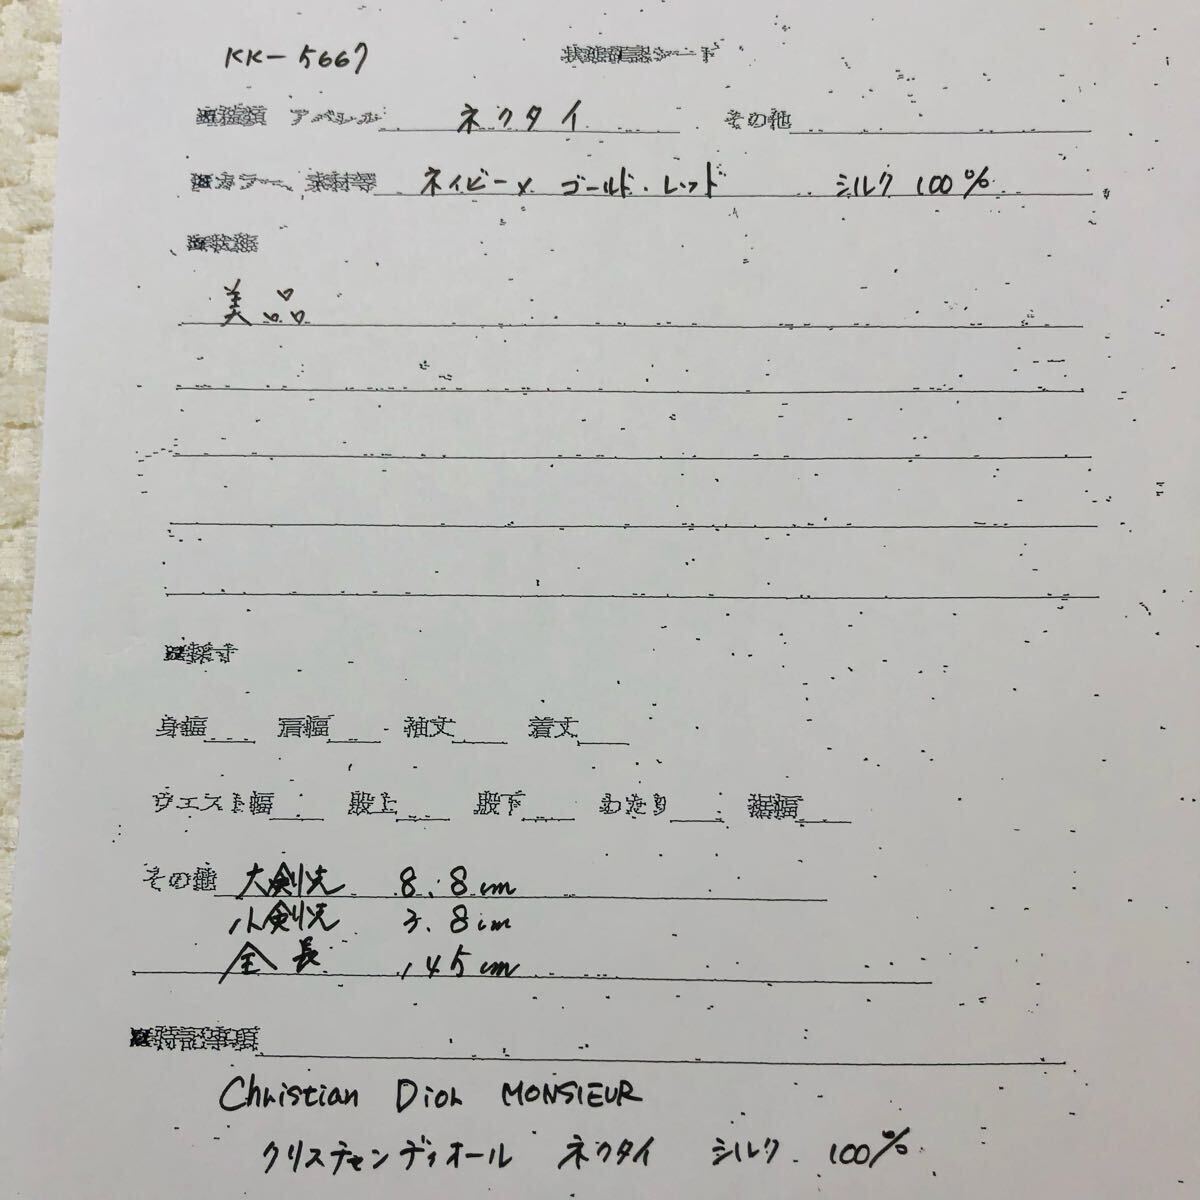 KK-5667 状態確認シート
■種類 アパレル ネクタイ その他
■カラー、素材等 ネイビー× ゴールド・レッド シルク 100%
■状態
美品
■採寸
身幅 肩幅 袖丈 着丈
ウエスト幅 股上 股下 わたり 裾幅
その他 大剣先 8.8cm
小剣先 3.8cm
全長 145cm
■特記事項
Christian Dior MONSIEUR
クリスチャンディオール ネクタイ シルク 100%